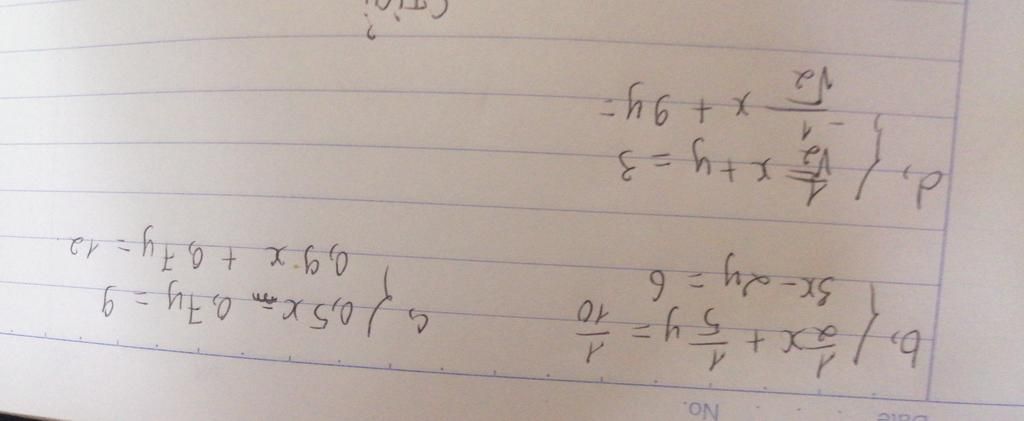 Date No.
b, { 1/2 x + 1/5 y = 1/10
3x - 2y = 6
c, { 0,5x - 0,7y = 9
0,9x + 0,7y = 12
d, { 1/√2 x + y = 3
-1/√2 x + 9y =